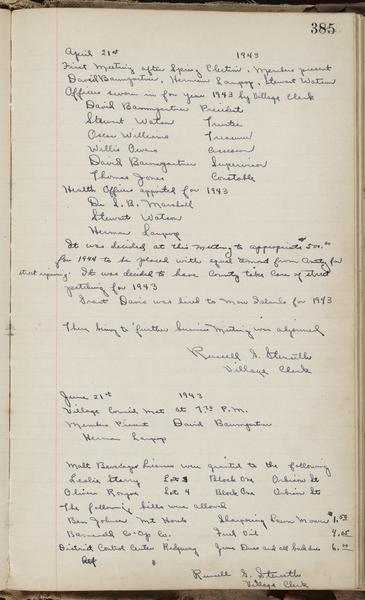 385
April 21st 1943
First Meeting after Spring Election. Members present
David Baumgartner, Herman Lanprop, Stewart Watson
Officers sworn in for year 1943 by Village Clerk
David Baumgartner President
Stewart Watson Trustee
Oscar Williams Treasurer
Willis Owens Assessor
David Baumgartner Supervisor
Thomas Jones Constable
Health Officer appointed for 1943
Dr. L. B. Marshall
Stewart Watson
Herman
It was decided at this meeting to appropriate $500.00
for 1944 to be placed with equal amount from County for
street repairing. It was decided to have County take care of street
patching for 1943
Grant Davis was hired to Mow Islands for 1943
There being no further business Meeting was adjourned
Russell G.
Village Clerk
June 21st 1943
Village Council Met at 7:30 P.M.
Members Present David Baumgartner
Herman
Malt Beverages License were granted to the following
Leslie Lot 8 Block One St
Oliver Lot 4 Block One St
The following bills were allowed
Ben Mt Horeb Sharpening Lawn Mower $1.50
Barneveld Co-Op Co. Fuel Oil 4.05
District Control Center Ridgeway June Dues and all back dues 6.00
Russell G.
Village Clerk